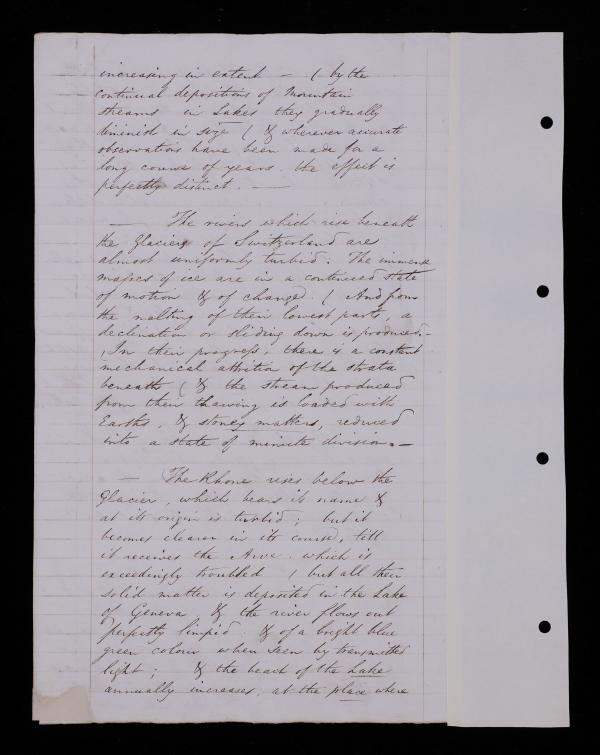 increasing in extent — ( by the
continual depositions of Mountain
streams in Lakes they gradually
diminish in size ( & wherever accurate
observations have been made for a
long course of years. the effect is
perfectly distinct. —
— The rivers which rise beneath
the Glaciers of Switzerland are
almost uniformly turbid. The immense
masses of ice are in a continued state
of motion & of change. ( And from
the melting of their lowest parts, a
declination or sliding down is produced.—
, In their progress, there is a constant
mechanical attrition of the strata
beneath ( & the stream produced
from their thawing is loaded with
Earths, & stoney matters, reduced
into a state of minute division. —
— The Rhone rises below the
Glacier, which bears its name &
at its origin is turbid; but it
becomes clearer in its course, till
it receives the Arve. which is
exceedingly troubled ( but all their
solid matter is deposited in the Lake
of Geneva, & the river flows out
perfectly limpid. & of a bright blue
green colour when seen by transmitted
light; & the head of the Lake
annually increases, at the place where